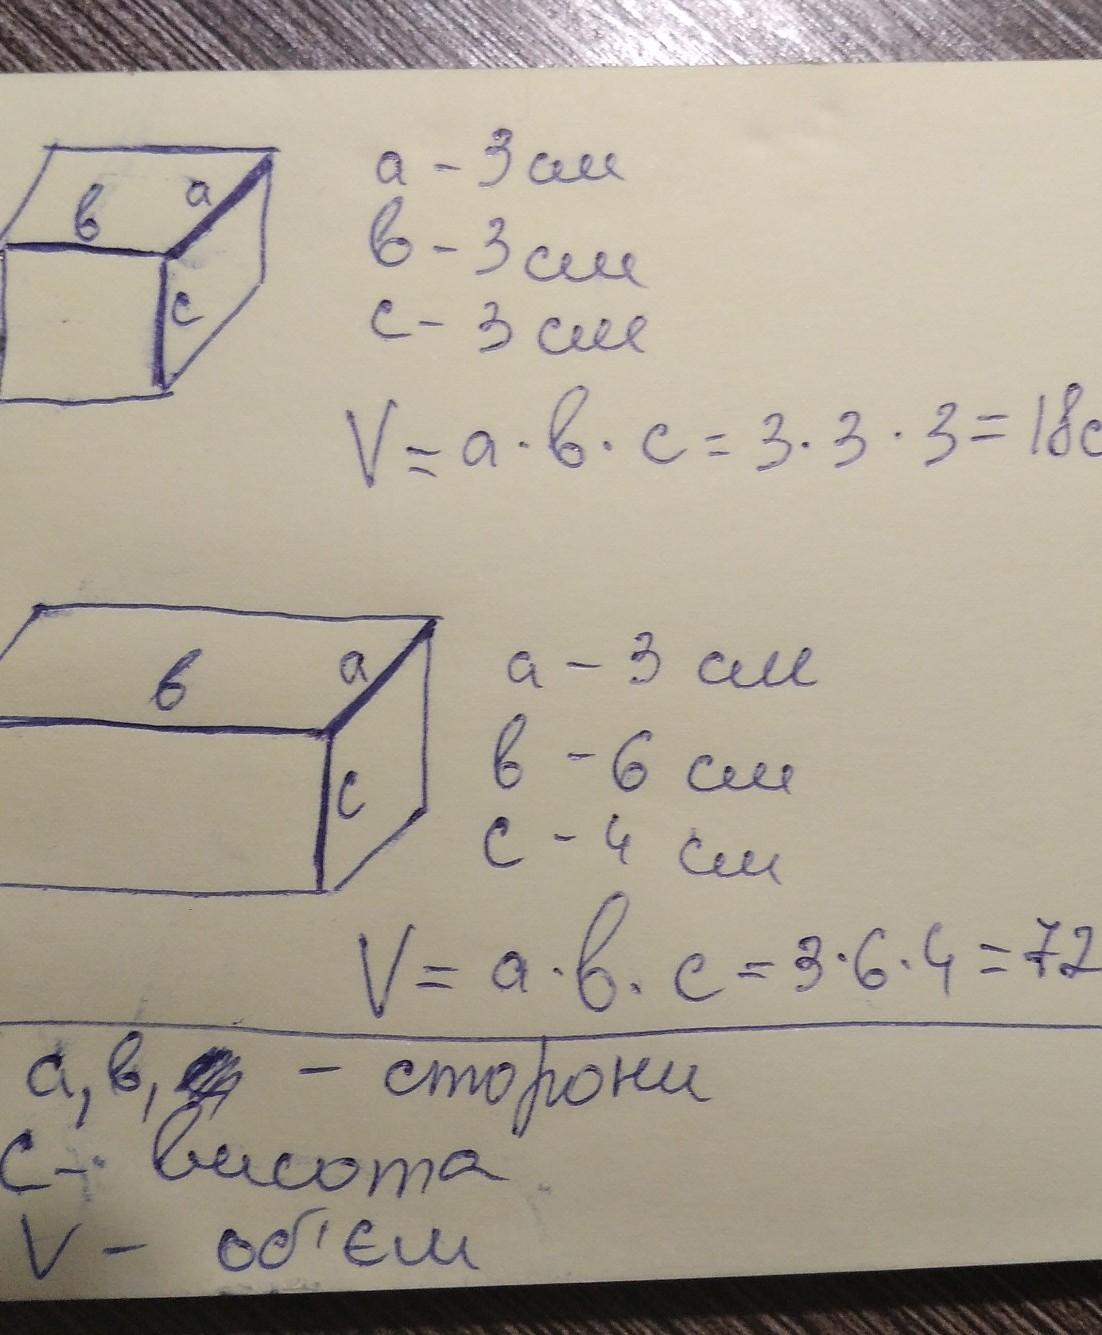 в a
c
a - 3 см
в - 3 см
c - 3 см
V = a · в · c = 3 · 3 · 3 = 18c
в a
c
a - 3 см
в - 6 см
c - 4 см
V = a · в · c = 3 · 6 · 4 = 72
a, в, - сторони
c - висота
V - об'єм